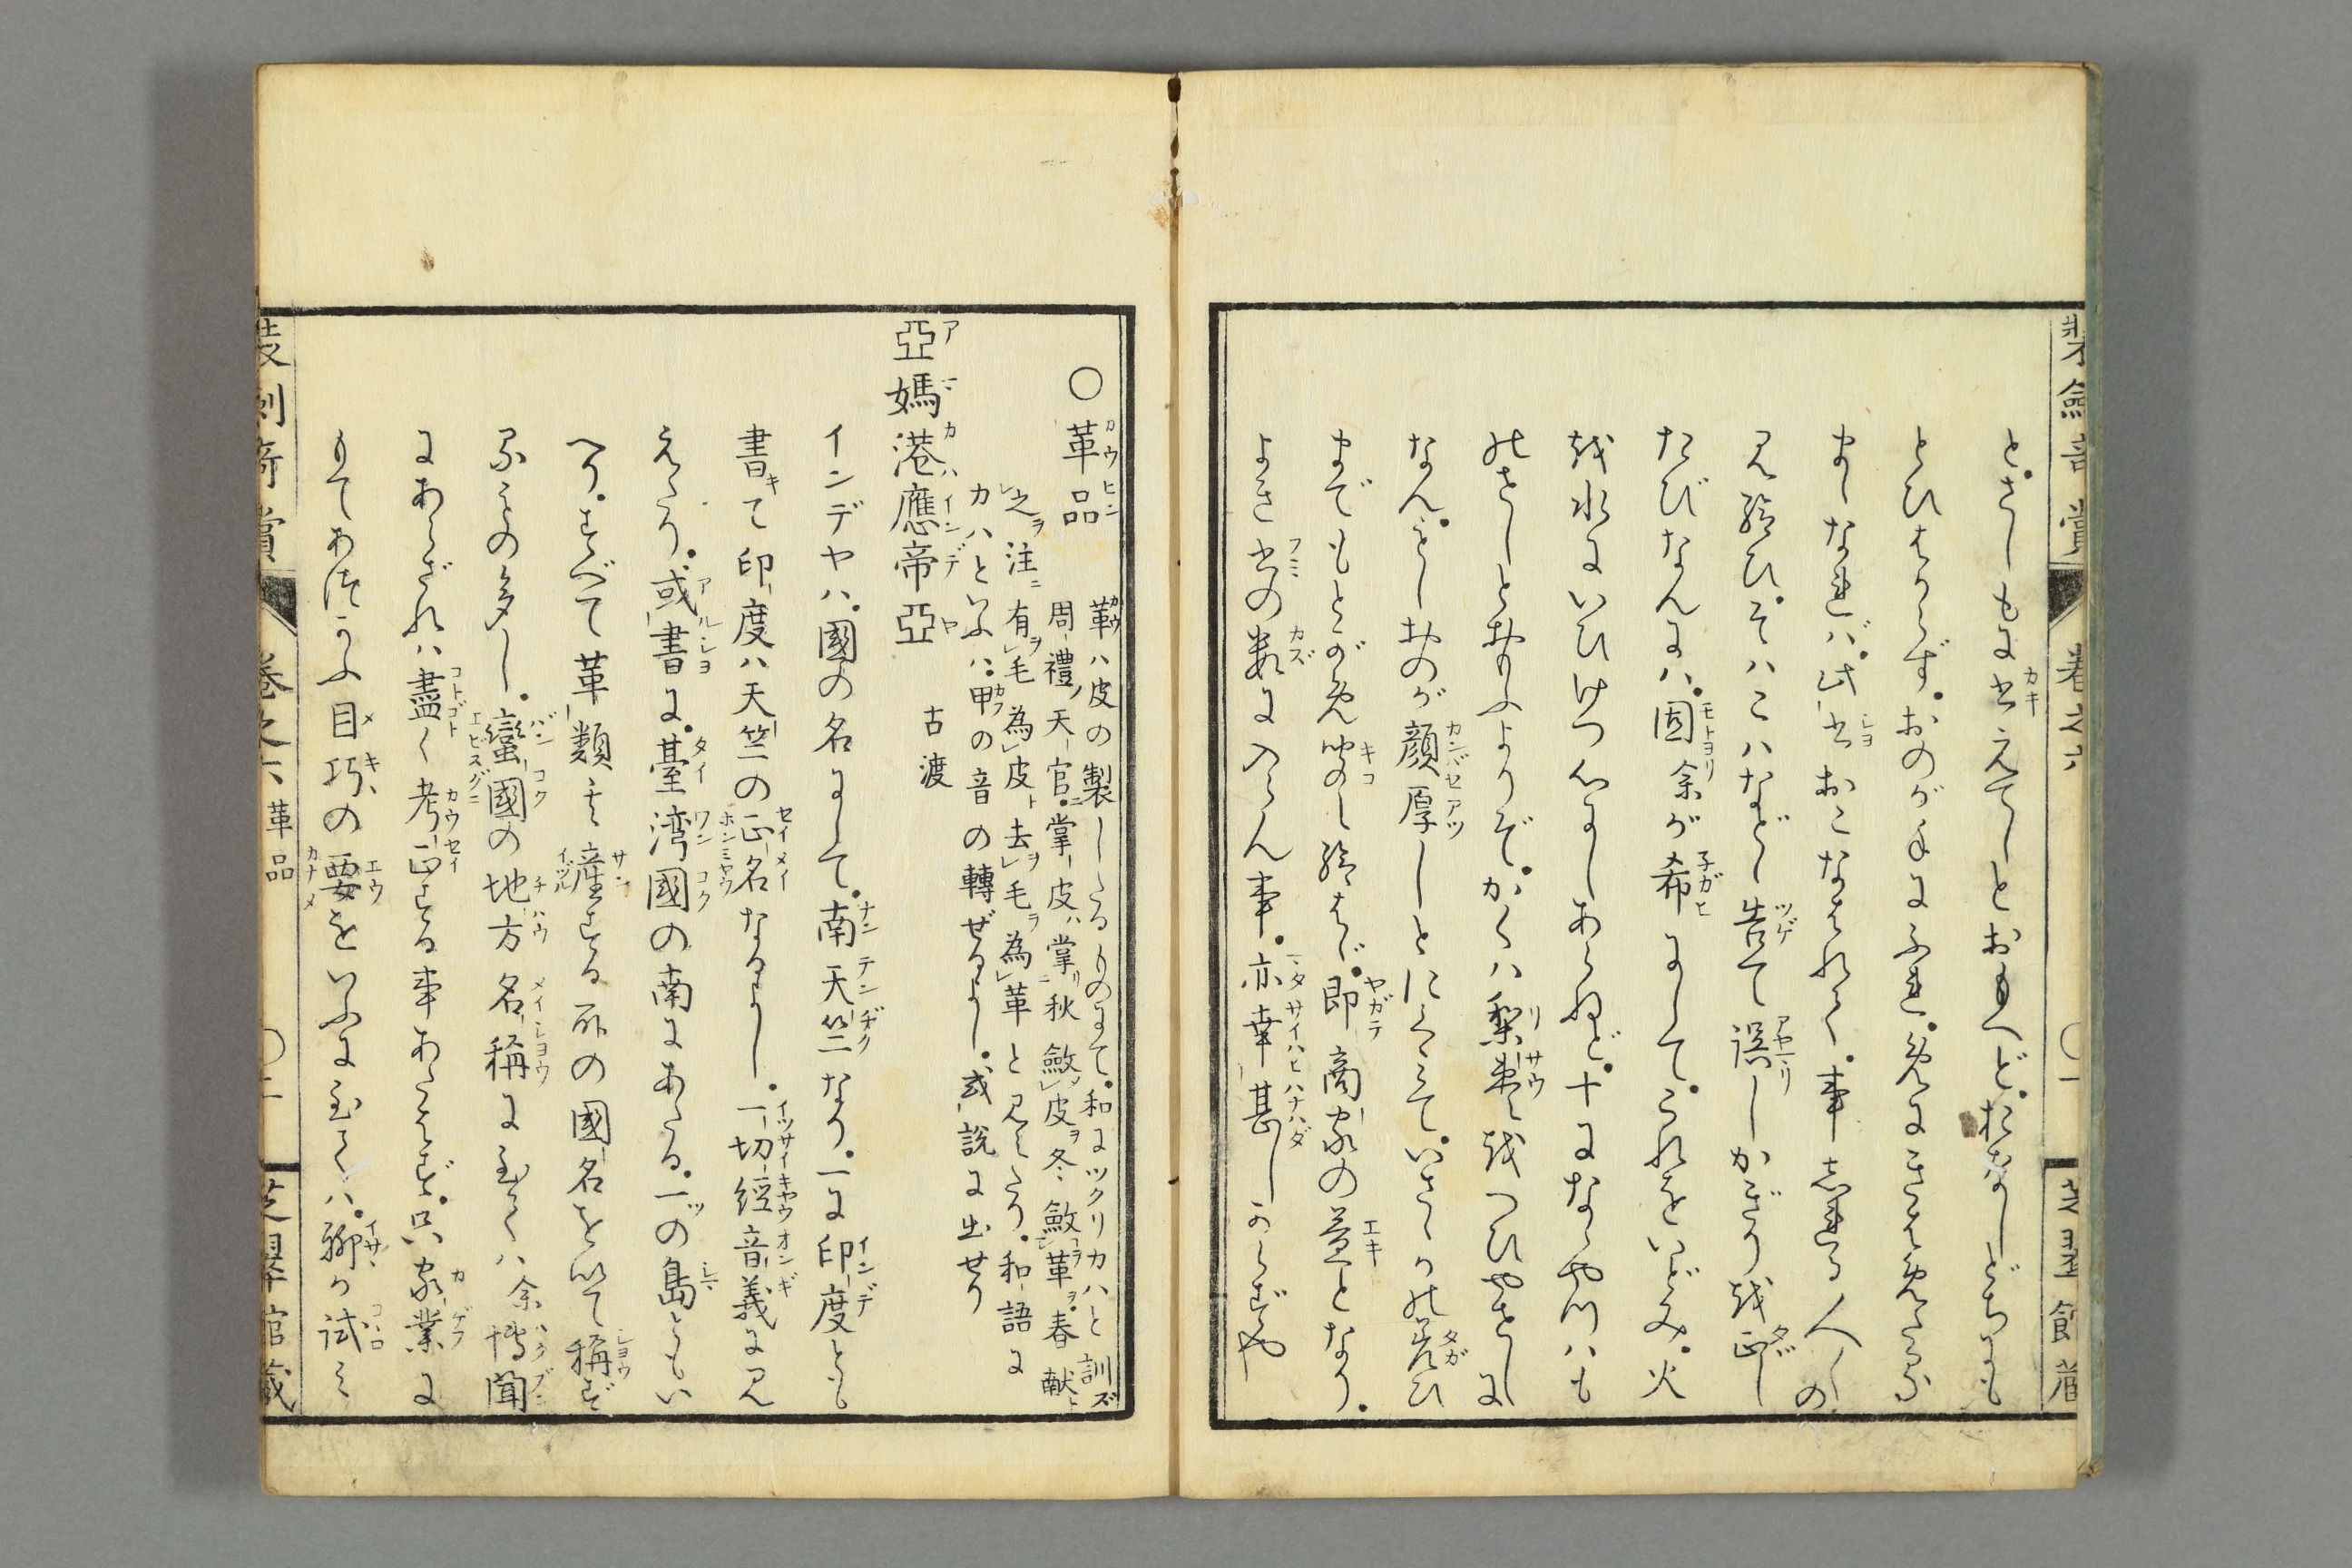 とさしもに書えてしとおもへどおなしどちにも
とひはからずおのが手にふれ
なれば此書おこなはれて事しれる人〱の
見給ひそハこハなどし告て誤しかざり越正し
たびなんにハ固余が希にしてこれをいどみ火
越水にいひけつ心にしあらねど十になゝやつハも
のさしとおもふよりぞかくハ梨棗越つひやさしに
なんさしおのが顔厚しと
までもとが免聞し給はゞ即商家の益となり
よき書の数に入らん事亦幸甚しからずや
装劔奇賞
巻之六
○一
芝翠館蔵
○革品
鞹ハ皮の製したるものにて和にツクリカハと訓ズ
周禮ノ天官ニ掌皮ハ掌リ秋斂皮ヲ冬斂革ヲ春献ニ
之ヲ注ニ有毛為皮ト去毛ヲ為革と見えたり和語に
カハといふハ甲の音の轉ぜるよし或説に出せり
亞媽港應帝亞 古渡
インデヤハ國の名にして南天竺なり一に印度とも
書て印度ハ天竺の正名なるよし一切經音義に見
えたり或書に臺湾國の南にあたる一ッの島ともい
へりすべて革類ハ産する所の國名を以て稱ず
るもの多し蠻國の地方名稱に至てハ余博聞
にあらざれハ盡く考正する事あたはず只家業に
もてあつかふ目巧の要をいふに至てハ聊か試ミ
装劔奇賞
巻之六 革品
○二
芝翠館蔵